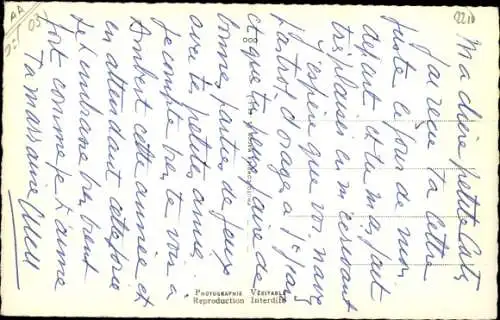 Ma chère petite
J'ai reçu ta lettre
juste ce jour de mon
départ et tu m'as fait
très plaisir en m'écrivant
J'espère que vous n'avez
pas trop d'orage à
et que tu peux faire de
bonnes parties de jeux
avec tes petites amies.
Je compte bien te voir à
Ambert cette année et
en attendant cette joie
je t'embrasse bien
fort comme je t'aime
Ta marraine
PHOTOGRAPHIE VÉRITABLE
Reproduction Interdite